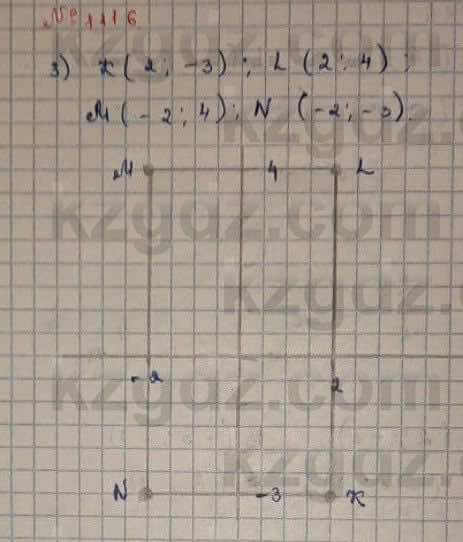 № 1116
3) K(2; -3); L (2; 4);
M(-2; 4); N (-2; -3).
M 4 L
-2 2
N -3 K
kzgdz.com
kzgdz.com
kzgdz.com
kzgdz.com
kzgdz.com